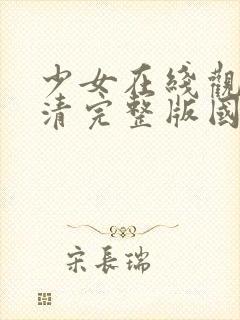 少女在綫觀
清完整版國
宋長瑞